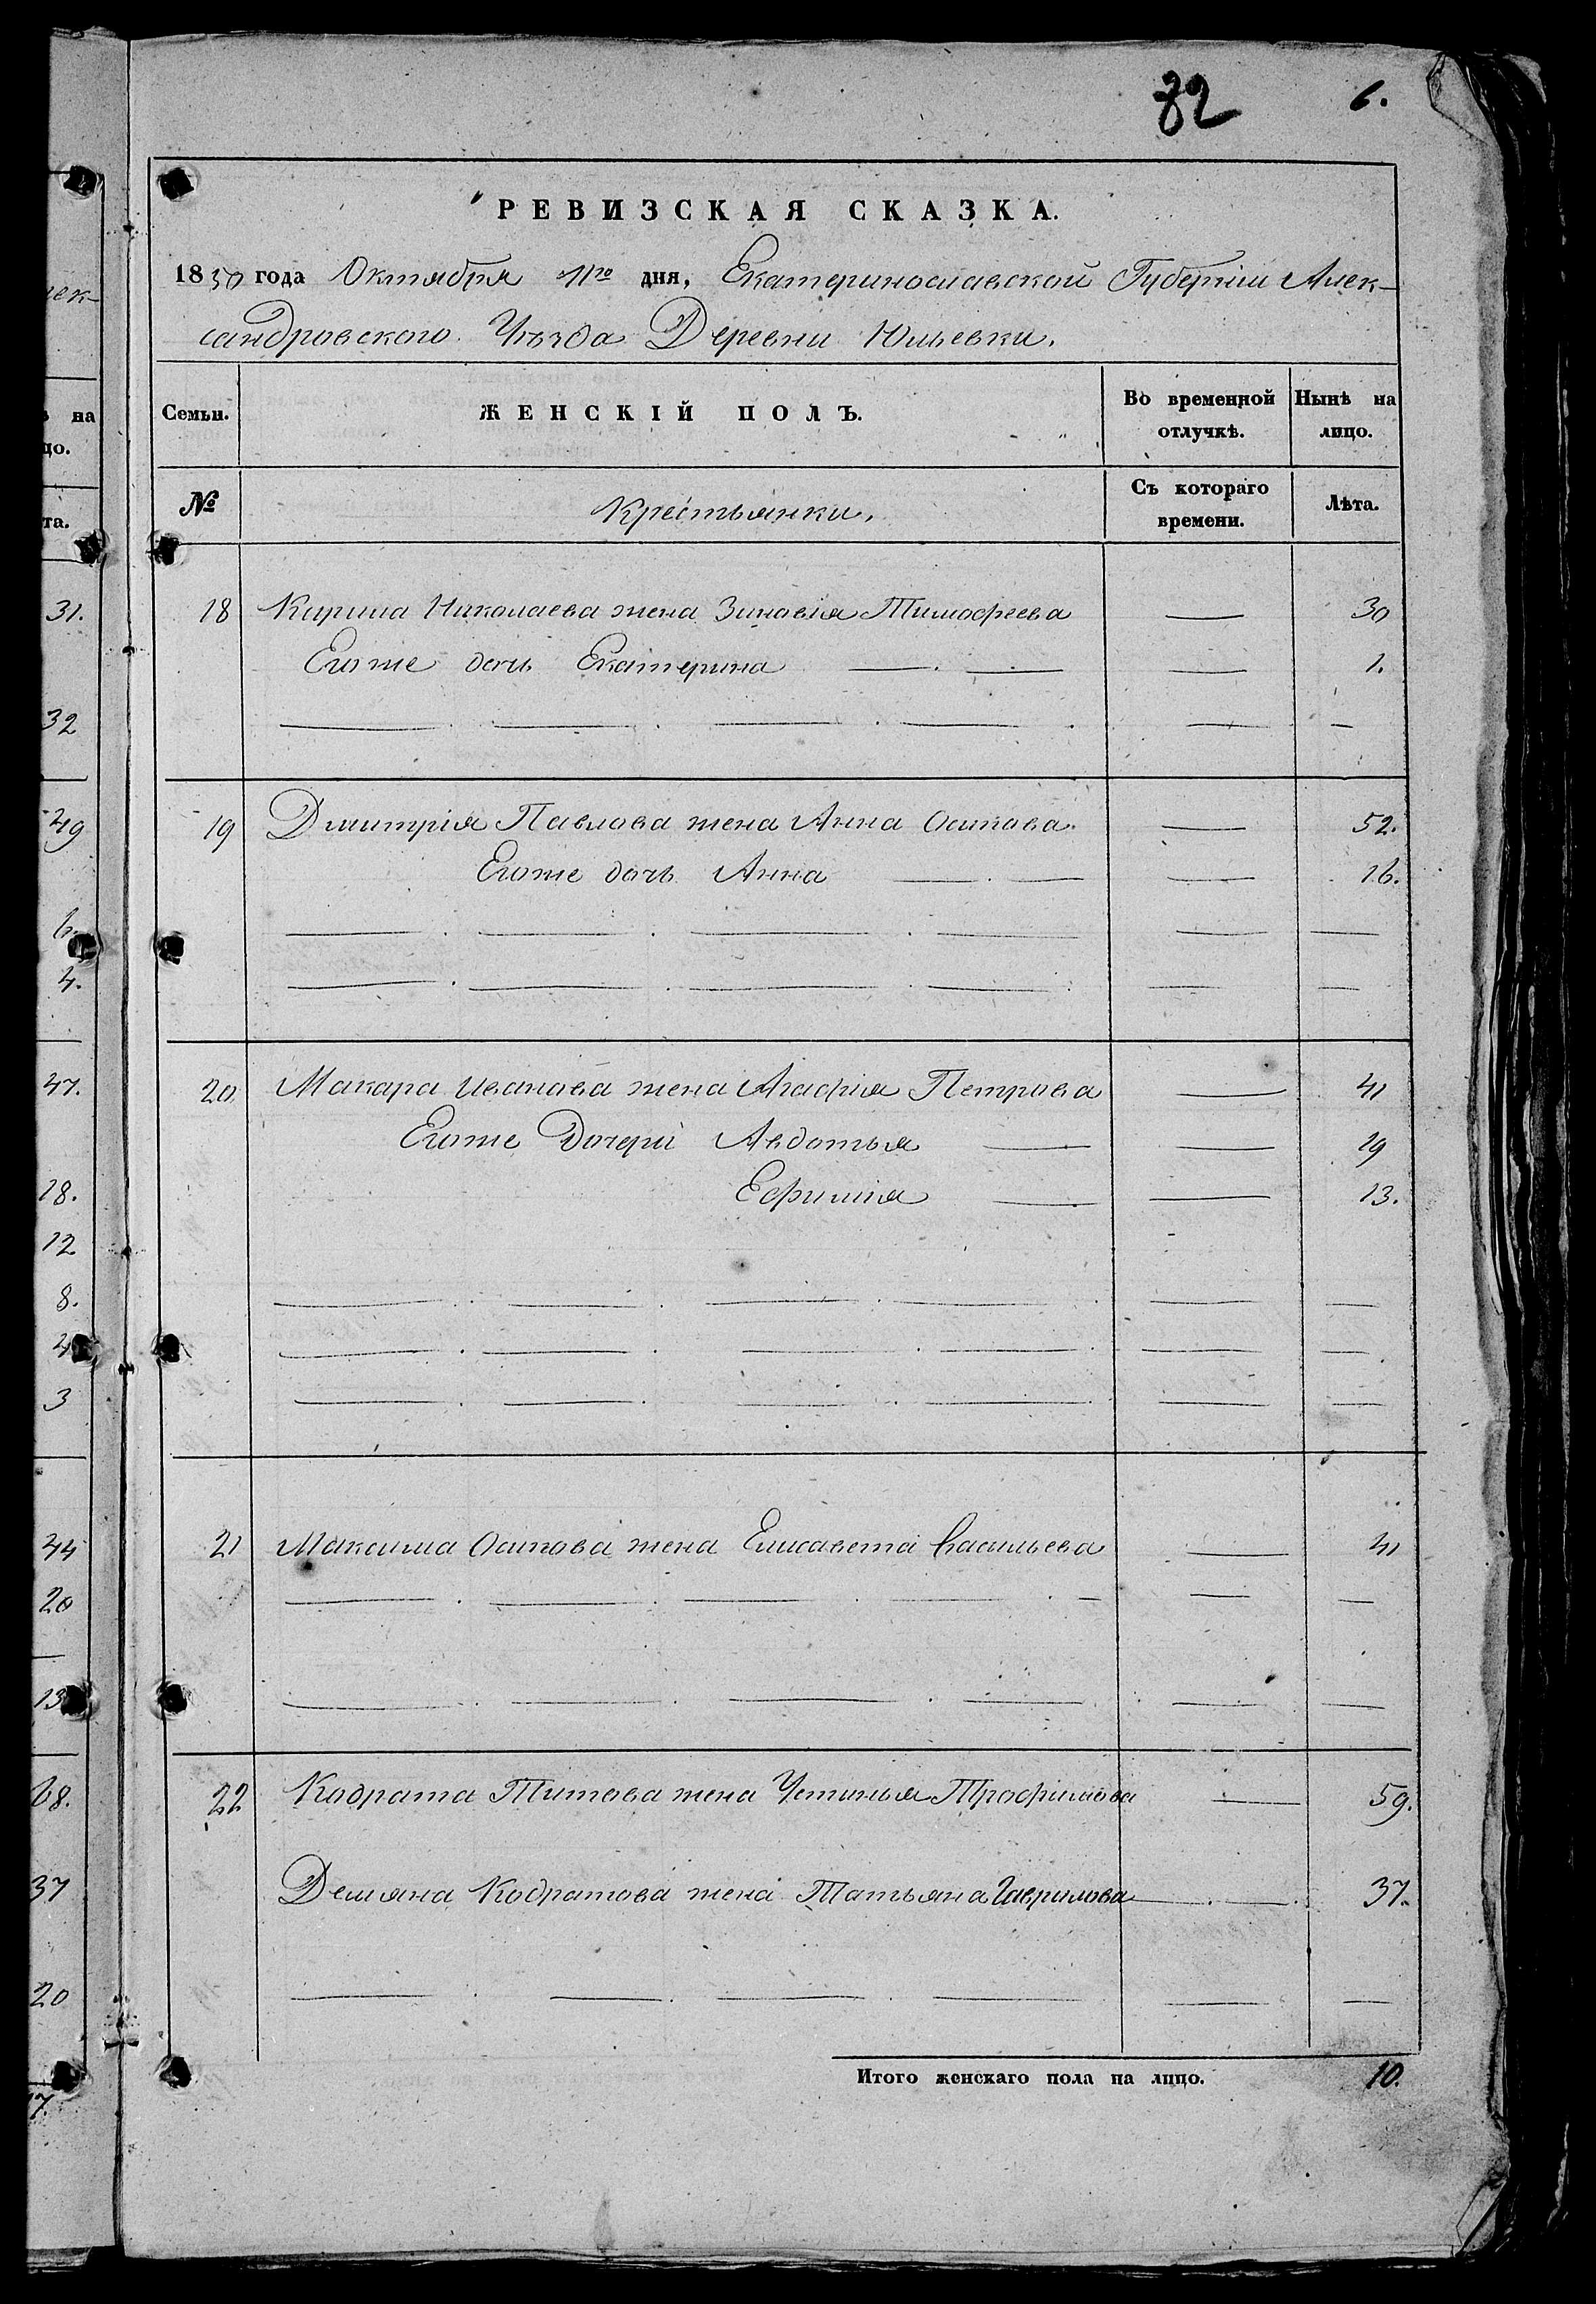 82 6.
РЕВИЗСКАЯ СКАЗКА.
1850 года Октября 11го дня, Екатеринославской Губерніи Алек-
сандровского Уѣзда Деревни Юльевки.
Семьи. ЖЕНСКІЙ ПОЛЪ. Во временной отлучкѣ. Нынѣ на лицо.
№ Крестьянки, Съ котораго времени. Лѣта.
18 Кирила Николаева жена Зиновія Тимофеева — 30
Егоже дочь Екатерина — — — 1.
19 Дмитрія Павлова жена Анна Осипова. — 52.
Егоже дочь Анна — — — 16.
20 Макара Иванова жена Агафія Петрова — 41
Егоже Дочери Авдотья — — 19
Ефимія — — 13.
21 Максима Осипова жена Елисавета Васильева — 41
22 Кодрата Титова жена Устинья Трофимова — 59.
Демяна Кодратова жена Татьяна Гаврилова — 37.
Итого женскаго пола на лицо. 10.
ек-
на
цо.
та.
31.
32
49
6.
4.
47.
18.
12
8.
4
3
44
20
13
68.
37
20
17.